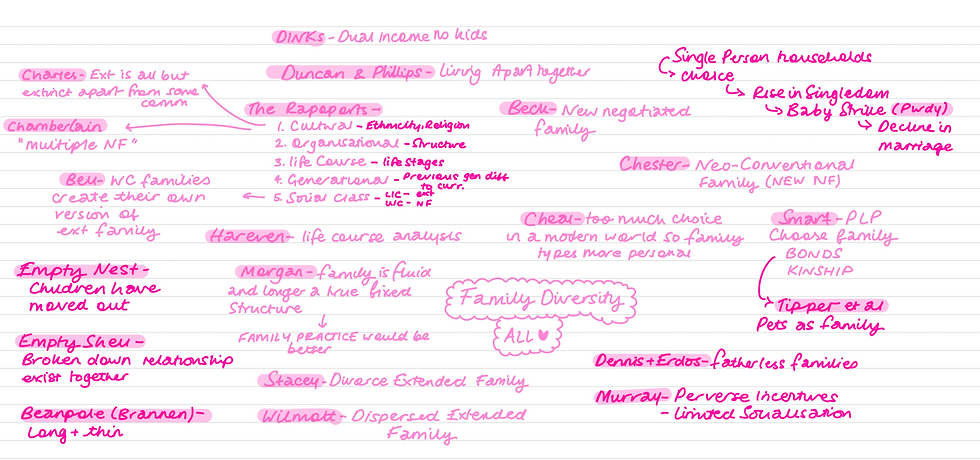 DINKs - Dual Income no kids
Duncan & Phillips - living Apart together
Single Person households
choice
Rise in Singledom
Baby Strike (Pwdy)
Decline in
marriage
Charles - Ext is all but
extinct apart from some
comm
Chamberlain
"multiple NF"
The Rapoports -
1. Cultural - Ethnicity, Religion
2. Organisational - Structure
3. life Course - life Stages
4. Generational - Previous gen diff
to curr.
5. Social class -
WC - NF
Beck - New negotiated
family
Chester - Neo-Conventional
Family (NEW NF)
Bell - WC families
create their own
version of
ext family
Hareven - life course analysis
Cheal - too much choice
in a modern world so family
types more personal
Smart - PLP
Choose family
BONDS
KINSHIP
Tipper et al
Pets as family
Empty Nest -
Children have
moved out
Morgan - family is fluid
and longer a true fixed
Structure
FAMILY PRACTICE would be
better
Family Diversity
ALL
Empty Shell -
Broken down relationship
exist together
Stacey - Divorce Extended Family
Dennis + Erdos - fatherless families
Murray - Perverse Incentives
- limited Socialisation
Beanpole (Brannen) -
Long + thin
Wilmott - Dispersed Extended
Family